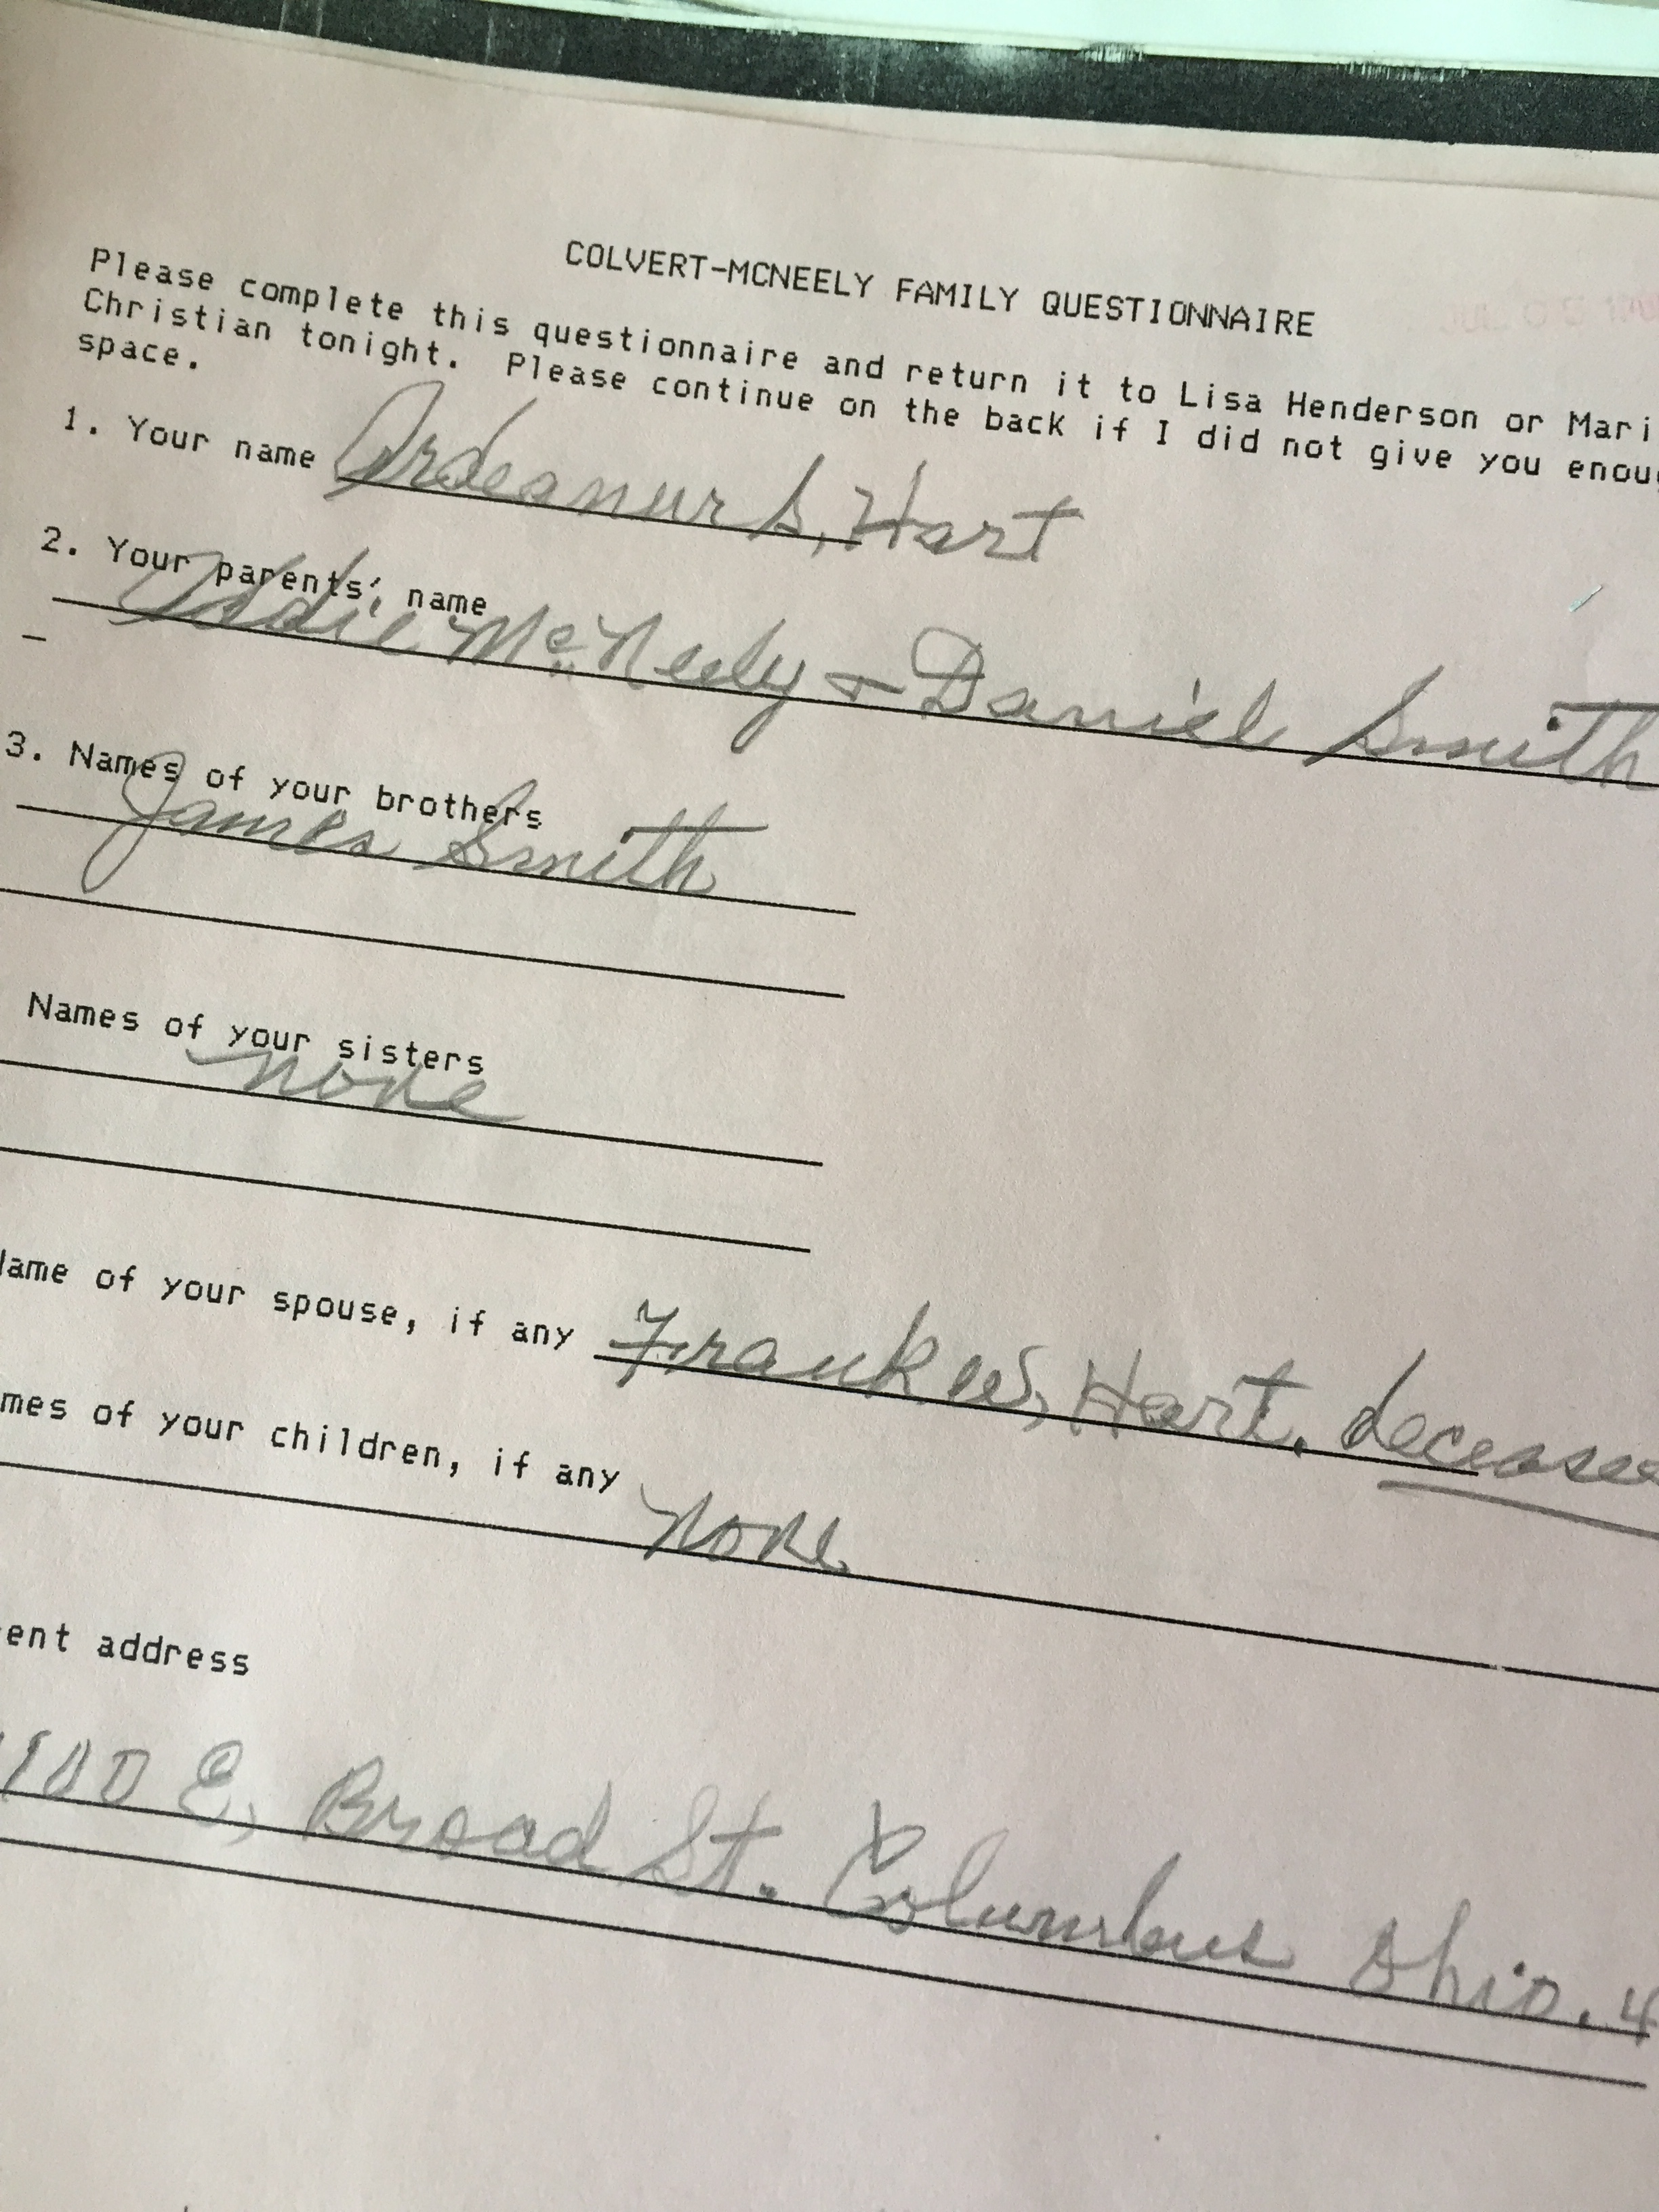 COLVERT-MCNEELY FAMILY QUESTIONNAIRE
JUL 05
Please complete this questionnaire and return it to Lisa Henderson or Mari
Christian tonight. Please continue on the back if I did not give you enoug
space.
1. Your name Ardeanur S. Hart
2. Your parents' name
Addie McNeely + Daniel Smith
3. Names of your brothers
James Smith
Names of your sisters
none
Name of your spouse, if any Frank W. Hart. decease
mes of your children, if any
none
ent address
100 E. Broad St. Columbus Ohio. 4